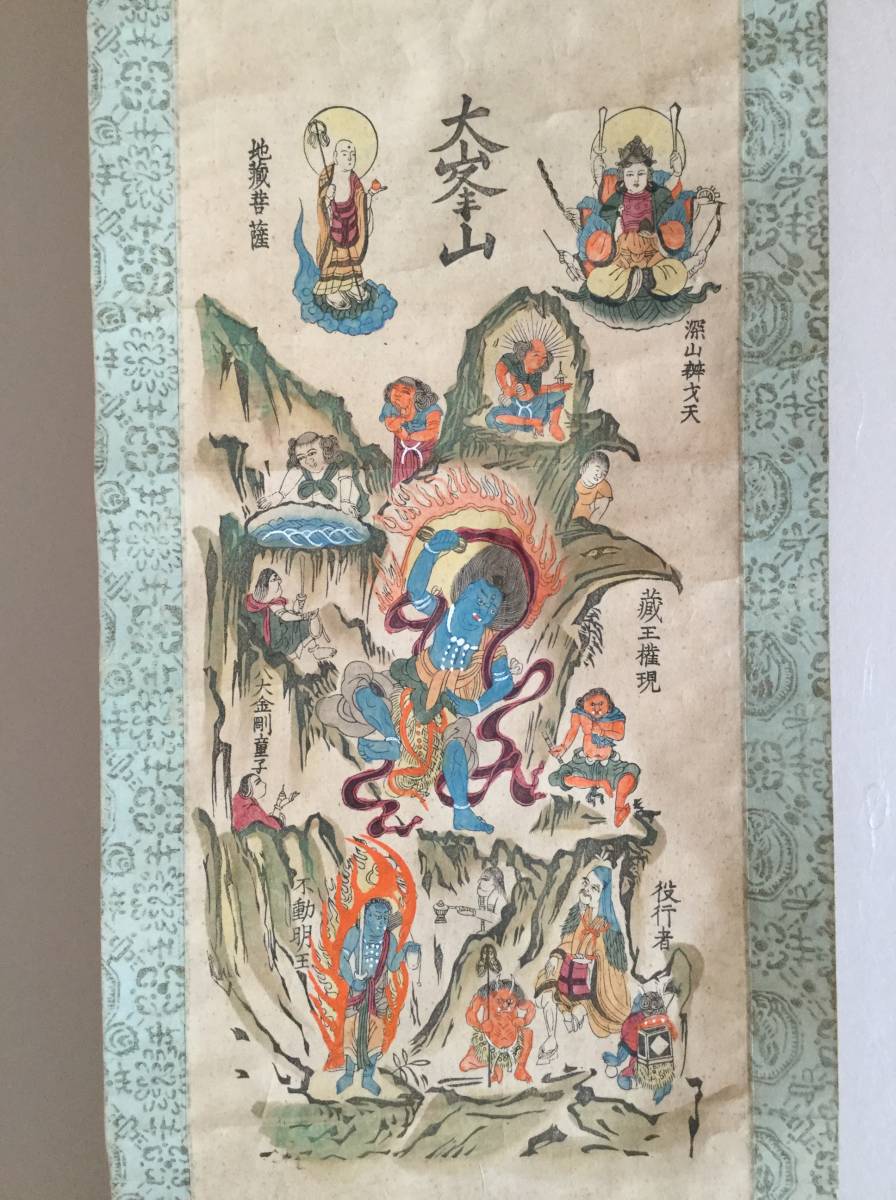 大峯山
深山辨才天
地蔵菩薩
藏王権現
八大金剛童子
役行者
不動明王